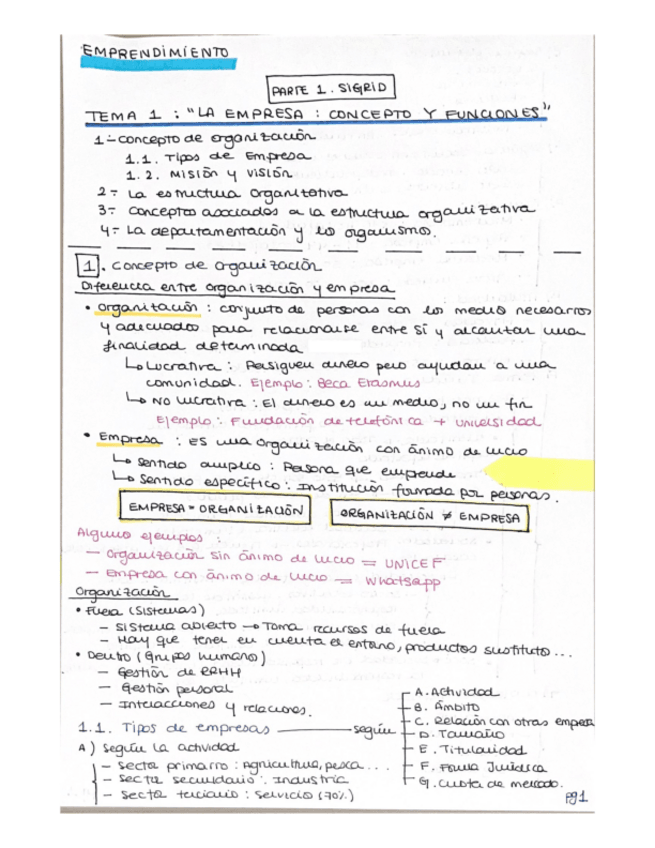 EMPRENDIMIENTO
PARTE 1. SIGRID
TEMA 1 : "LA EMPRESA : CONCEPTO Y FUNCIONES"
1- Concepto de organización
1.1. Tipos de Empresa
1.2. Misión y visión
2- La estructura organitativa
3- Conceptos asociados a la estructura organizativa
4- La departamentación y los organismos.
1. Concepto de organización
Diferencia entre organización y empresa
• Organización : conjunto de personas con los medios necesarios
y adecuados para relacionarse entre sí y alcanzar una
finalidad determinada
↳ Lucrativa : Persiguen dinero pero ayudan a una
comunidad. Ejemplo : Beca Erasmus
↳ No lucrativa : El dinero es un medio, no un fin
Ejemplo : Fundación de telefónica + universidad
• Empresa : Es una organización con ánimo de lucro
↳ Sentido amplio : Persona que emprende
↳ Sentido específico : Institución formada por personas.
EMPRESA = ORGANIZACIÓN
ORGANIZACIÓN ≠ EMPRESA
Alguno ejemplos :
— Organización sin ánimo de lucro = UNICEF
— Empresa con ánimo de lucro = Whatsapp
Organización
• Fuera (Sistemas)
— Sistema abierto → Toma recursos de fuera
— Hay que tener en cuenta el entorno, productos sustituto...
• Dentro (Grupos humano)
— Gestión de RRHH
— Gestión personal
— Interacciones y relaciones.
1.1. Tipos de empresas — según
A. Actividad
B. Ámbito
C. Relación con otras empresa
D. Tamaño
E. Titularidad
F. Forma Jurídica
G. Cuota de mercado.
A) Según la actividad
— Sector primario : Agricultura, pesca...
— Sector secundario : Industria
— Sector terciario : Servicio (70%)
Pg 1